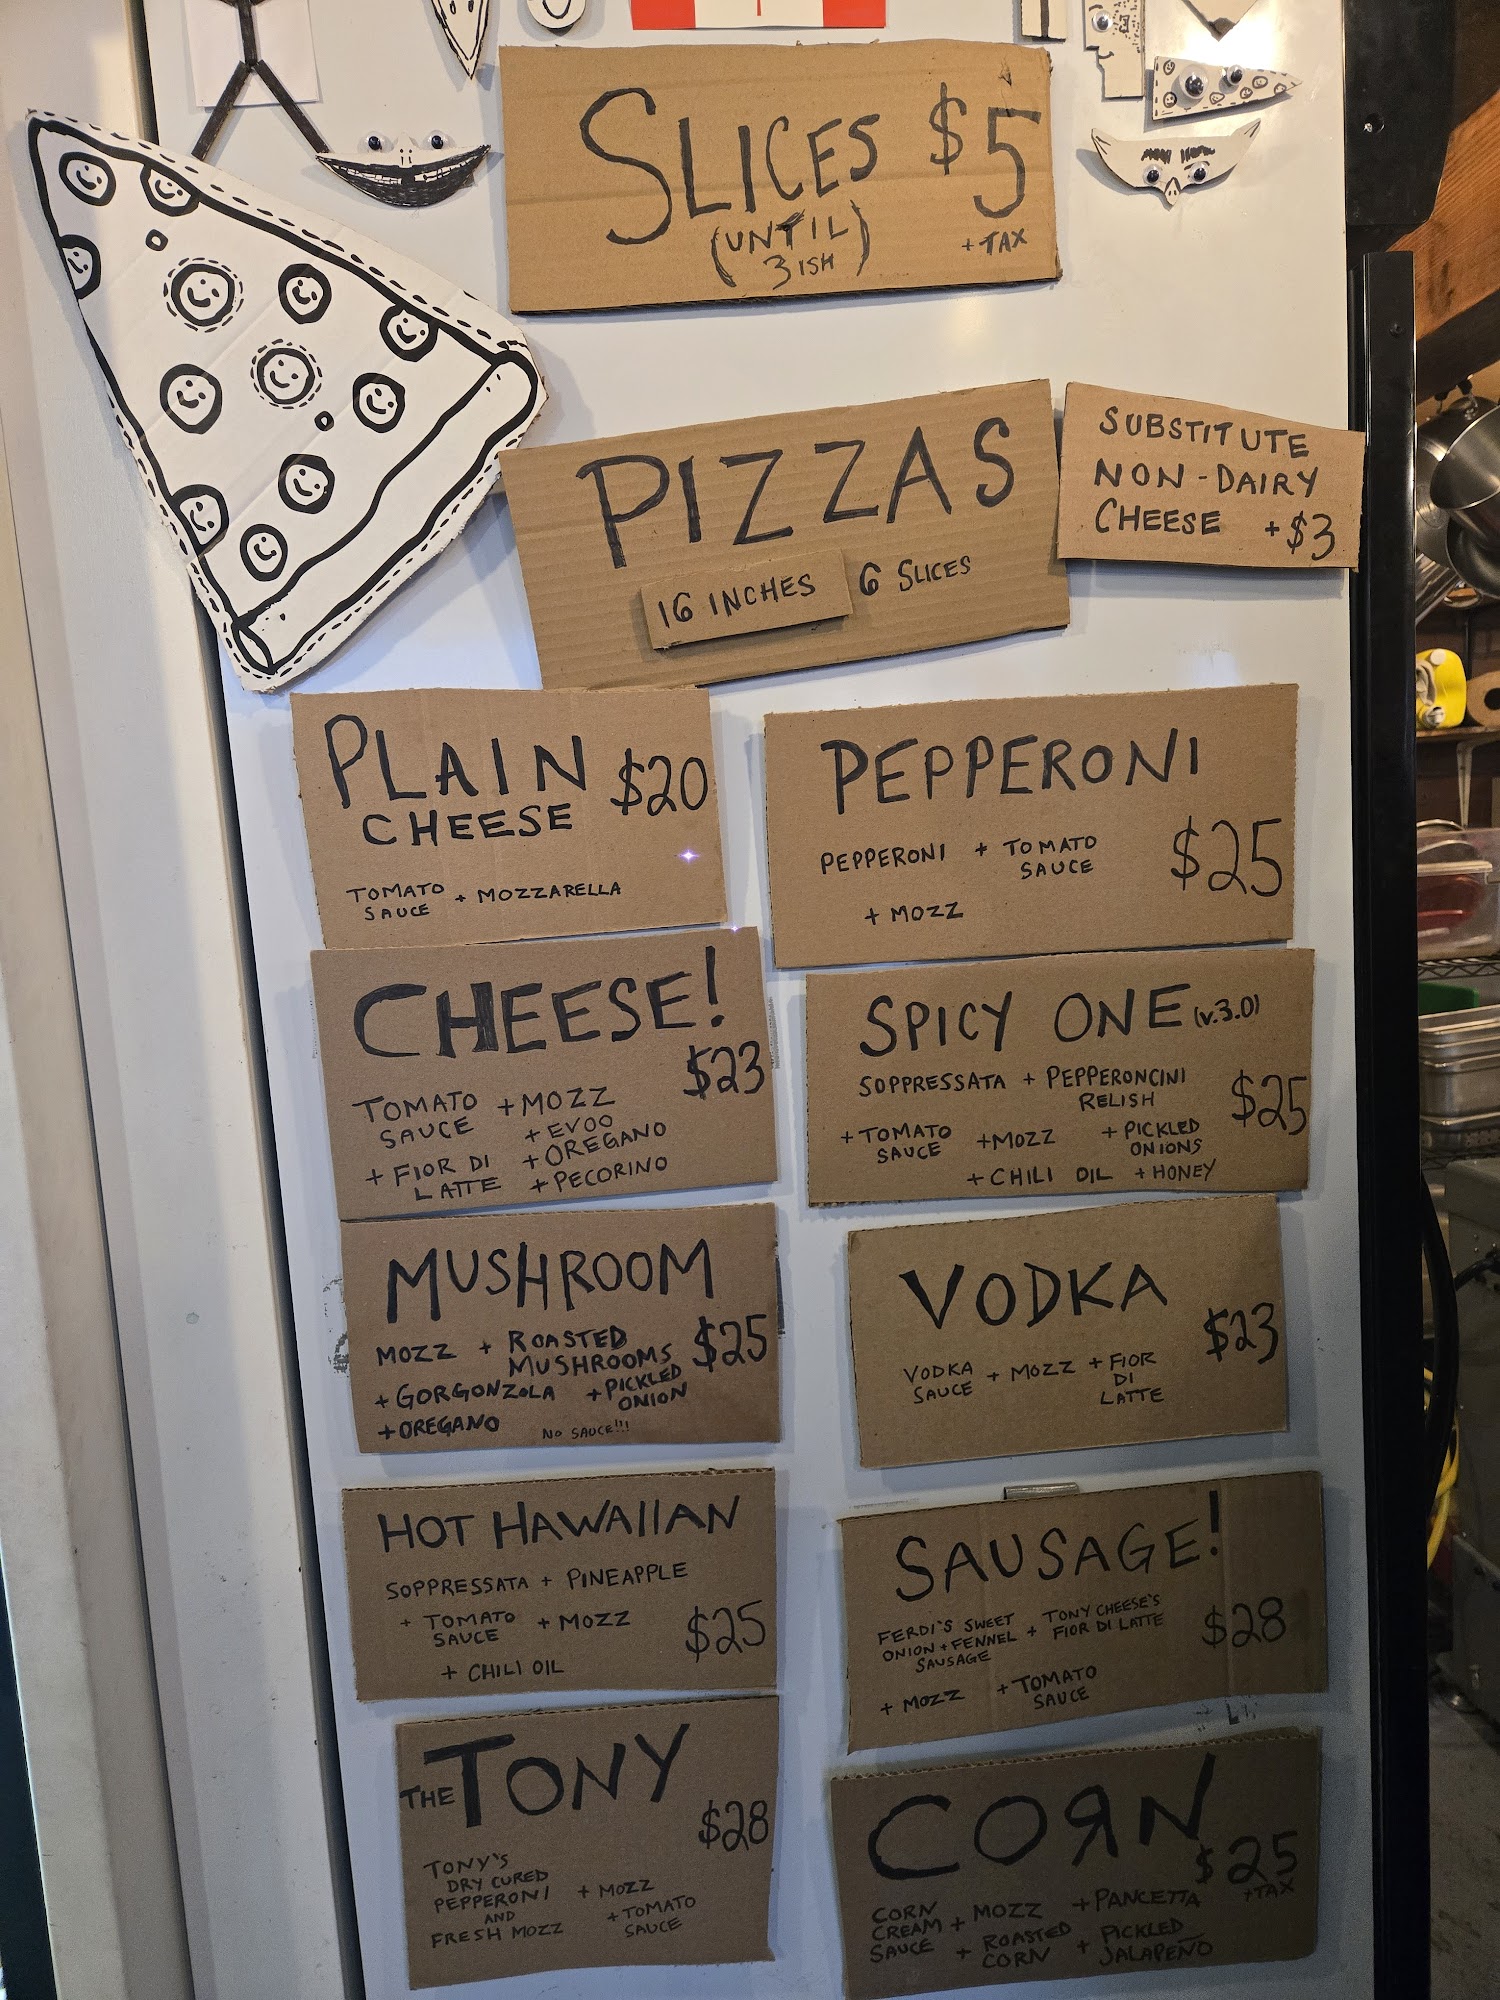 SLICES $5
(UNTIL 3ISH)
+ TAX
PIZZAS
16 INCHES 6 SLICES
SUBSTITUTE
NON-DAIRY
CHEESE +$3
PLAIN
CHEESE
$20
TOMATO SAUCE + MOZZARELLA
PEPPERONI
PEPPERONI + TOMATO SAUCE
+ MOZZ
$25
CHEESE!
$23
TOMATO SAUCE + MOZZ
+ EVOO
+ FIOR DI LATTE + OREGANO
+ PECORINO
SPICY ONE (v.3.0)
SOPPRESSATA + PEPPERONCINI RELISH
$25
+ TOMATO SAUCE + MOZZ + PICKLED ONIONS
+ CHILI OIL + HONEY
MUSHROOM
$25
MOZZ + ROASTED MUSHROOMS
+ GORGONZOLA + PICKLED ONION
+ OREGANO
NO SAUCE!!!
VODKA
$23
VODKA SAUCE + MOZZ + FIOR DI LATTE
HOT HAWAIIAN
SOPPRESSATA + PINEAPPLE
+ TOMATO SAUCE + MOZZ
$25
+ CHILI OIL
SAUSAGE!
FERDI'S SWEET ONION + FENNEL SAUSAGE + TONY CHEESE'S FIOR DI LATTE
$28
+ MOZZ + TOMATO SAUCE
THE TONY
$28
TONY'S
DRY CURED
PEPPERONI
AND
FRESH MOZZ
+ MOZZ
+ TOMATO SAUCE
COЯN
$25
+TAX
CORN CREAM SAUCE + MOZZ + PANCETTA
+ ROASTED CORN + PICKLED JALAPEÑO